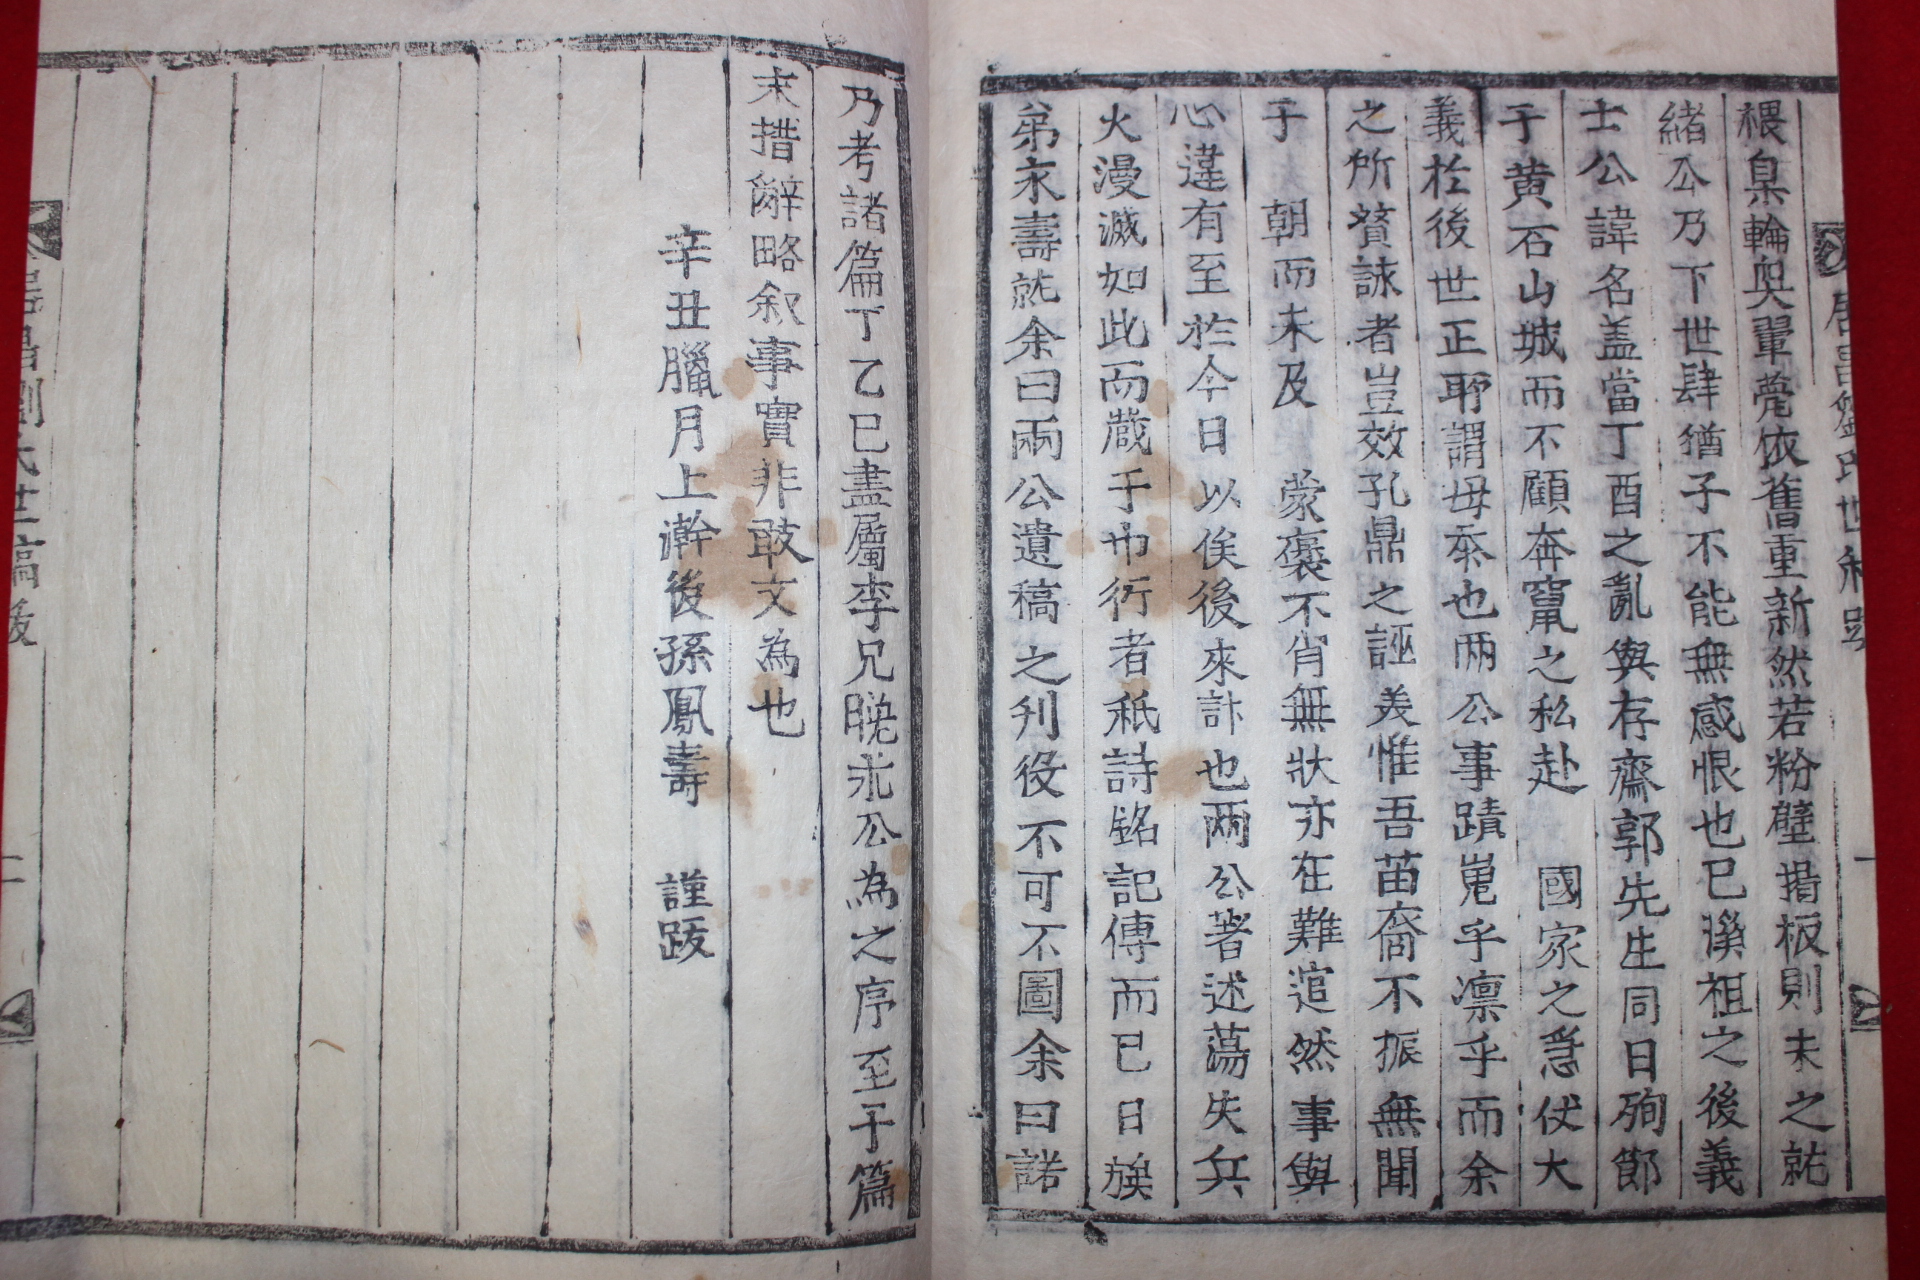 椳臬輪奐翬甍依舊重新然若粉壁措板則未之就
緒公乃下世肆猶子不能無感恨也已溪祖之後義
士公諱名盖當丁酉之亂與存齋郭先生同日殉節
于黃石山城而不顧奔竄之私赴 國家之急伏大
義於後世正耶謂毋忝也兩公事蹟嵬乎凛乎而余
之所贅詠者豈效孔鼎之誣美惟吾苗裔不振無聞
于 朝而未及 蒙褒不肖無狀亦在難逭然事與
心違有至於今日以俟後來計也兩公著述蕩失兵
火漫滅如此而蕆于巾衍者秖詩銘記傳而已日族
弟永壽就余曰兩公遺稿之刋役不可不圖余曰諾
乃考諸篇丁乙巳盡屬李兄晚永公為之序至于篇
末措辭略叙事實非敢文為也
辛丑臘月上澣後孫鳳壽 謹跋
居昌劉氏世稿跋
二